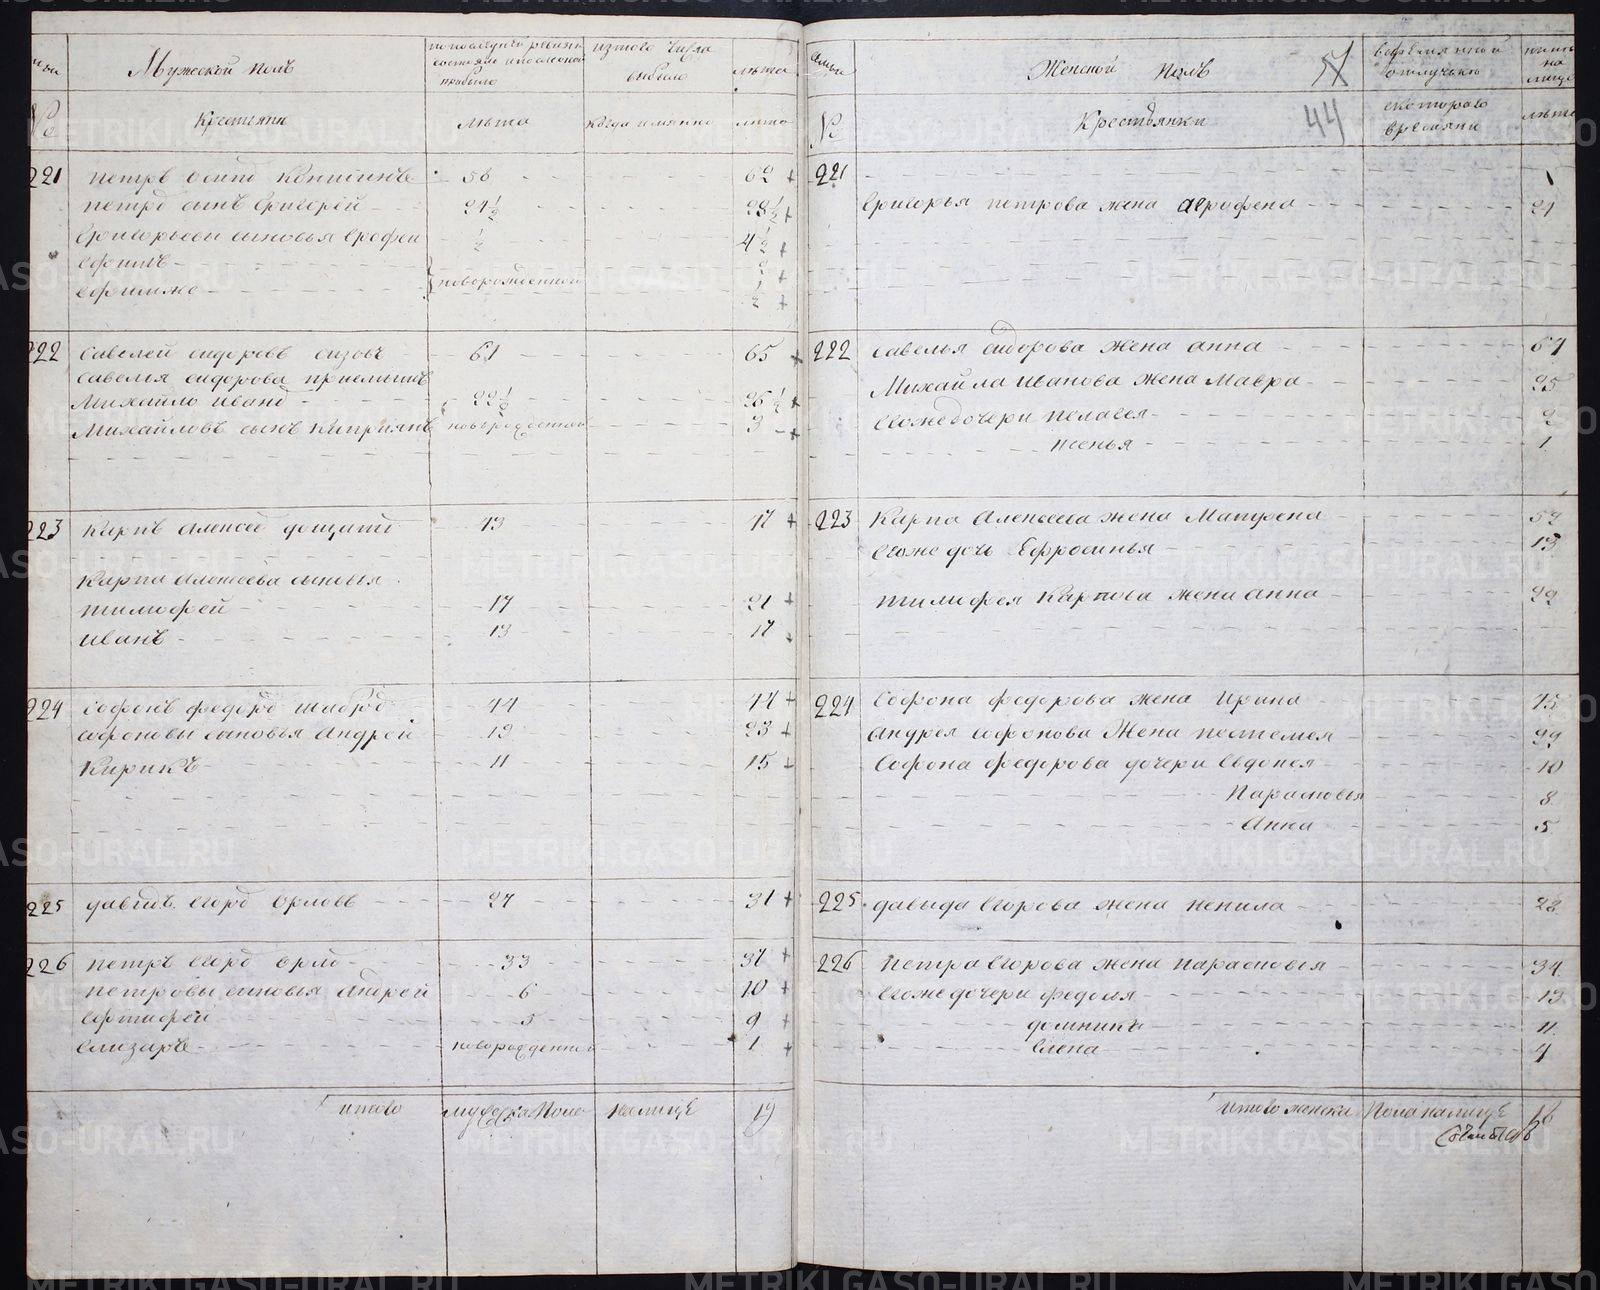 Мужеской полъ
по последней ревизии состояло и после оной прибыло
изъ того числа выбыло
лета
№
Крестьяня
лета
когда имянно
лета
221 петръ осипо 58 62
петро сынъ Григорей 24½ 28½
Григорьевы сыновья Ерофеи ½ 4½
Ефимъ 2
Ефимже новорожденной 1
½
222 Савелей сидоровъ сизовъ 61 65
Савелья сидорова приемышъ
Михайло Ивано 22½ 26½
Михайловъ сынъ Киприянъ новорожденной 3
223 Карпъ Алексеё 13 17
Карпа Алексеева сыновья
тимофей 17 21
иванъ 13 17
224 Софонъ федоро 44
Софоновы сыновья Андрей 19 23
Кирикъ 11 15
225 давыдъ Егоро Орловъ 27 31
226 петръ Егоро орло 33 37
петровы сыновья Андрей 6 10
Ефтифей 5 9
Елизаръ новорожденной 1
итого мужеска пола налицѣ 19
Женской полъ
51
во временной отлучке
ныне на лице
№
Крестьянки
44
с котораго времяни
лета
221
Григорья петрова жена Агрофена 21
222 Савелья сидорова жена анна 67
Михайла Иванова жена Мавра 25
Егоже дочери пелагея 2
ксенья 1
223 Карпа Алексеева жена Матрена 52
Егоже дочь Ефросинья 13
тимофея Карпова жена анна 22
224 Софона федорова жена Ирина 45
Андрея Софонова жена пестемея 22
Софона федорова дочери Евдокея 10
Парасковья 8
Анна 5
225 давыда Егорова жена ненила 28
226 петра Егорова жена парасковья 34
Егоже дочери федосья 13
домника 11
Елена 4
Итого женска пола налицѣ 16
METRIKI.GASO-URAL.RU